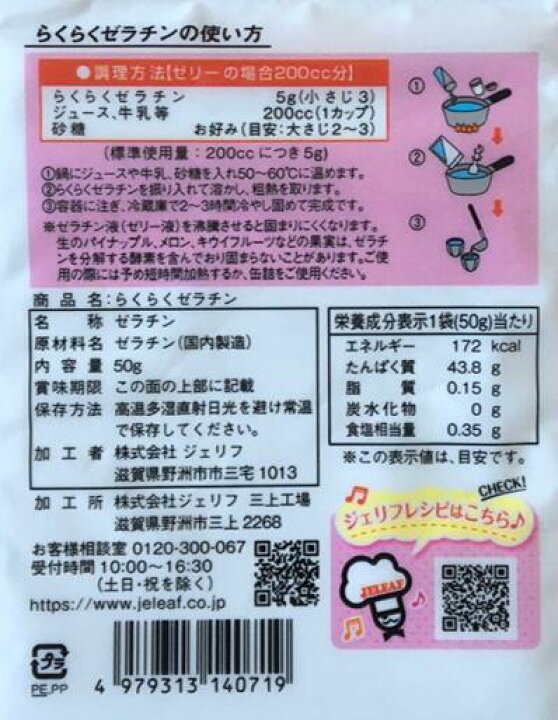 らくらくゼラチンの使い方
●調理方法【ゼリーの場合200cc分】
らくらくゼラチン 5g(小さじ3)
ジュース、牛乳等 200cc(1カップ)
砂糖 お好み(目安:大さじ2〜3)
(標準使用量:200ccにつき5g)
①鍋にジュースや牛乳、砂糖を入れ50〜60℃に温めます。
②らくらくゼラチンを振り入れて溶かし、粗熱を取ります。
③容器に注ぎ、冷蔵庫で2〜3時間冷やし固めて完成です。
※ゼラチン液(ゼリー液)を沸騰させると固まりにくくなります。
生のパイナップル、メロン、キウイフルーツなどの果実は、ゼラチ
ンを分解する酵素を含んでおり固まらないことがあります。ご使
用の際には予め短時間加熱するか、缶詰をご使用ください。
①
②
③
商品名:らくらくゼラチン
名称 ゼラチン
原材料名 ゼラチン(国内製造)
内容量 50g
賞味期限 この面の上部に記載
保存方法 高温多湿直射日光を避け常温
で保存してください。
加工者 株式会社 ジェリフ
滋賀県野洲市市三宅1013
加工所 株式会社ジェリフ 三上工場
滋賀県野洲市三上2268
お客様相談室 0120-300-067
受付時間 10:00〜16:30
(土日・祝を除く)
https://www.jeleaf.co.jp
栄養成分表示1袋(50g)当たり
エネルギー 172 kcal
たんぱく質 43.8 g
脂質 0.15 g
炭水化物 0 g
食塩相当量 0.35 g
※この表示値は、目安です。
CHECK!
ジェリフレシピはこちら♪
JELEAF
プラ
PE,PP
4 979313 140719